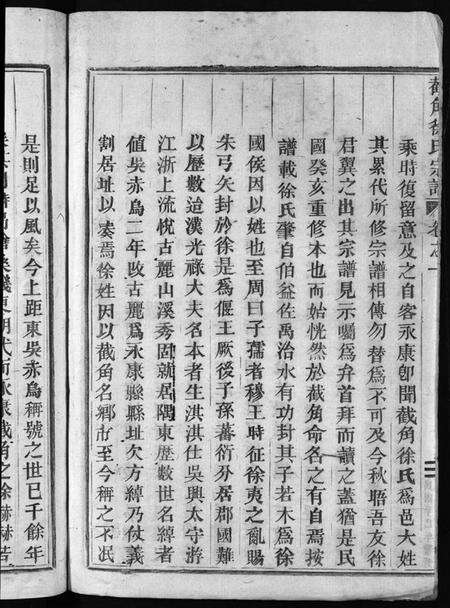 截角徐氏宗譜 卷之一
乘時復留意及之自客永康卽聞截角徐氏爲邑大姓
其累代所修宗譜相傳勿替爲不可及今秋晤吾友徐
君翼之出其宗譜見示囑爲弁首拜而讀之蓋猶是民
國癸亥重修本也而始恍然於截角命名之有自焉按
譜載徐氏肇自伯益佐禹治水有功封其子若木爲徐
國侯因以姓也至周曰子孺者穆王時征徐夷之亂賜
朱弓矢封於徐是爲偃王厥後子孫蕃衍分居郡國難
以歷數迨漢光祿大夫名本者生淇淇仕吳興太守游
江浙上流悅古麗山溪秀固就居隅東歷數世名綽者
値吳赤烏二年改古麗爲永康縣縣址欠方綽乃仗義
割居址以𥙷焉徐姓因以截角名鄉市至今稱之不泯
是則足以風矣今上距東吳赤烏稱號之世已千餘年